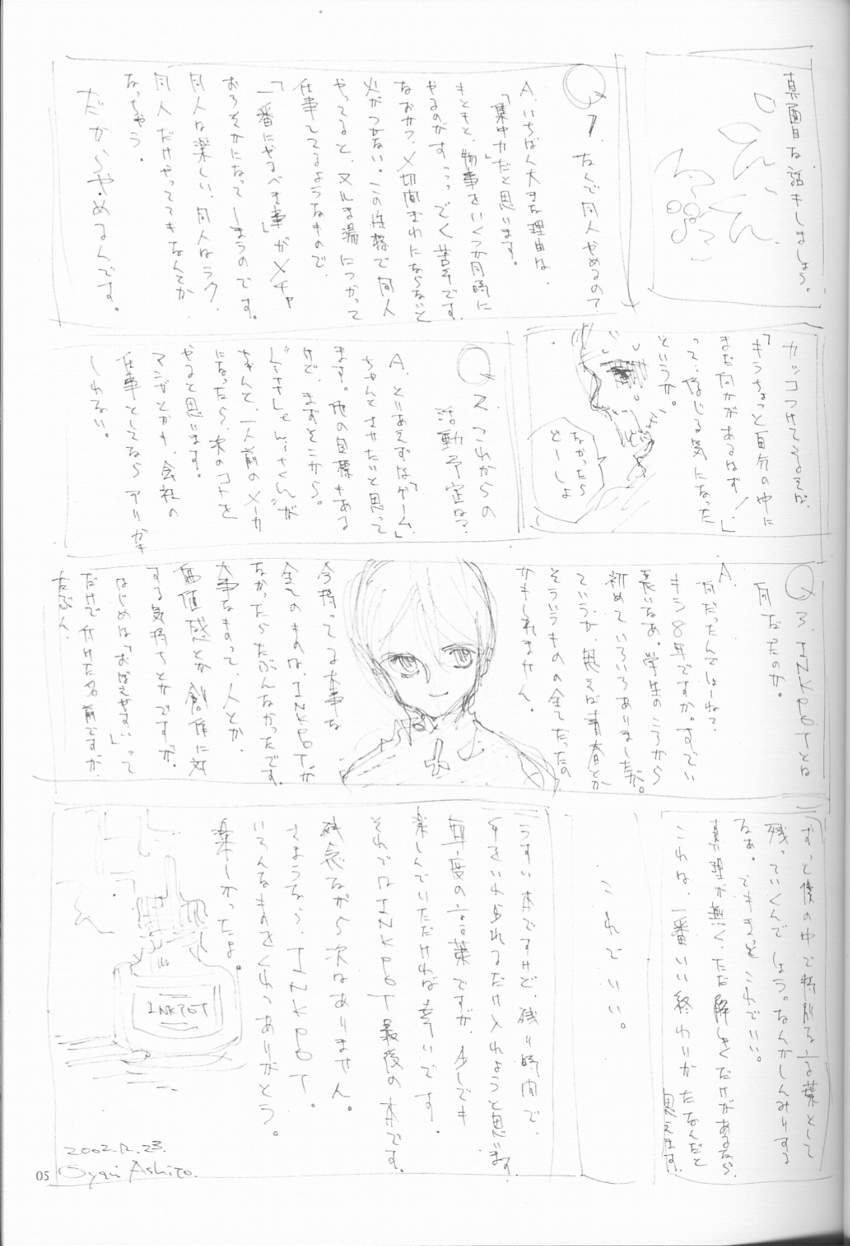 真面目な話をしましょう。
Q1、なんで同人やめるのて
A、いちばん大きな理由は、
「集中力」だと思います。
もともと、物事をいくつか同時に
やるのがすっごく苦手です。
なおかつ、〆切間ぎわにならないと
火がつかない。この性格で同人
やってると、ヌルま湯につかって
仕事してるようなもので、
「一番にやるべき事」がメチャ
おろそかになってしまうのです。
同人は楽しい、同人はラク、
同人だけやってて
なっちゃう。
だからやめるんです。
カッコつけて
「もうちょっと自分の中に
まだ何かがあるはず!」
って、信じる気になった
というか。
なかったら
どーしよ
Q2、これからの
活動予定は?
A、とりあえずは「ゲーム」
ちゃんとさせたいと思って
ます。他の目標もある
けど、まずそこから。
ちゃんと、一人前のメーカ
になったら、次のコトを
やると思います。
マンガとかも、会社の
仕事としてなら アリかも
しれない。
Q3、INKPOTとは
何なのか。
A、
何だったんでしょーね?
もう8年ですか。すごい
長いなあ。学生のころから
初めていろいろありましたが。
ていうか、思えば青春とか
そういうものの全てだったの
かもしれません。
今持ってる大事な
全てのものは、INKPOTが
なかったらたぶんなかったです。
大事なものって、人とか、
価値感とか創作に対
する気持ちとかですが。
はじめは「おぼえやすい」って
だけで付けた名前ですが、
たぶん、
ずっと僕の中で特別な言葉として
残っていくんでしょう。なんかしんみりする
なぁ。でもきっとこれでいい。
真理が無く、ただ解しくだけがあるなら、
これは、一番いい終わりかたなんだと
思えます。
これでいい。
うすい本ですけど、残り時間で、
手をいれられるだけ入れようと思います。
毎度の言葉ですが、少しでも
楽しんでいただければ幸いです。
それではINKPOT最後の本です。
残念ながら次はありません。
さようなら、INKPOT。
いろんなものをくれてありがとう。
楽しかったよ。
INKPOT
2002.12.23.
Oyari Ashito.
05